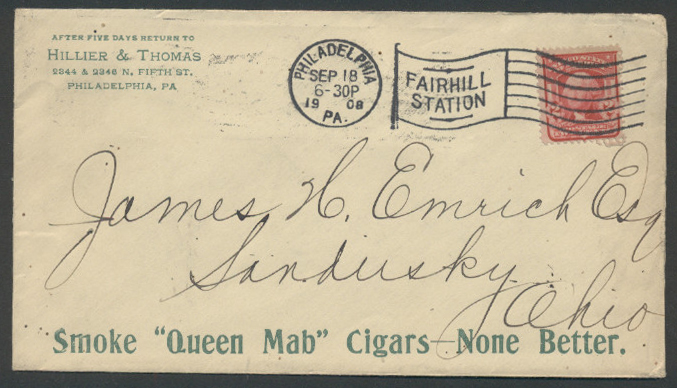 AFTER FIVE DAYS RETURN TO
HILLIER & THOMAS
2344 & 2346 N. FIFTH ST.
PHILADELPHIA, PA
PHILADELPHIA
SEP 18
6-30P
19 08
PA.
FAIRHILL
STATION
James H. Emrich Esq
Sandusky
Ohio
Smoke "Queen Mab" Cigars—None Better.